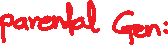 parental Gen: